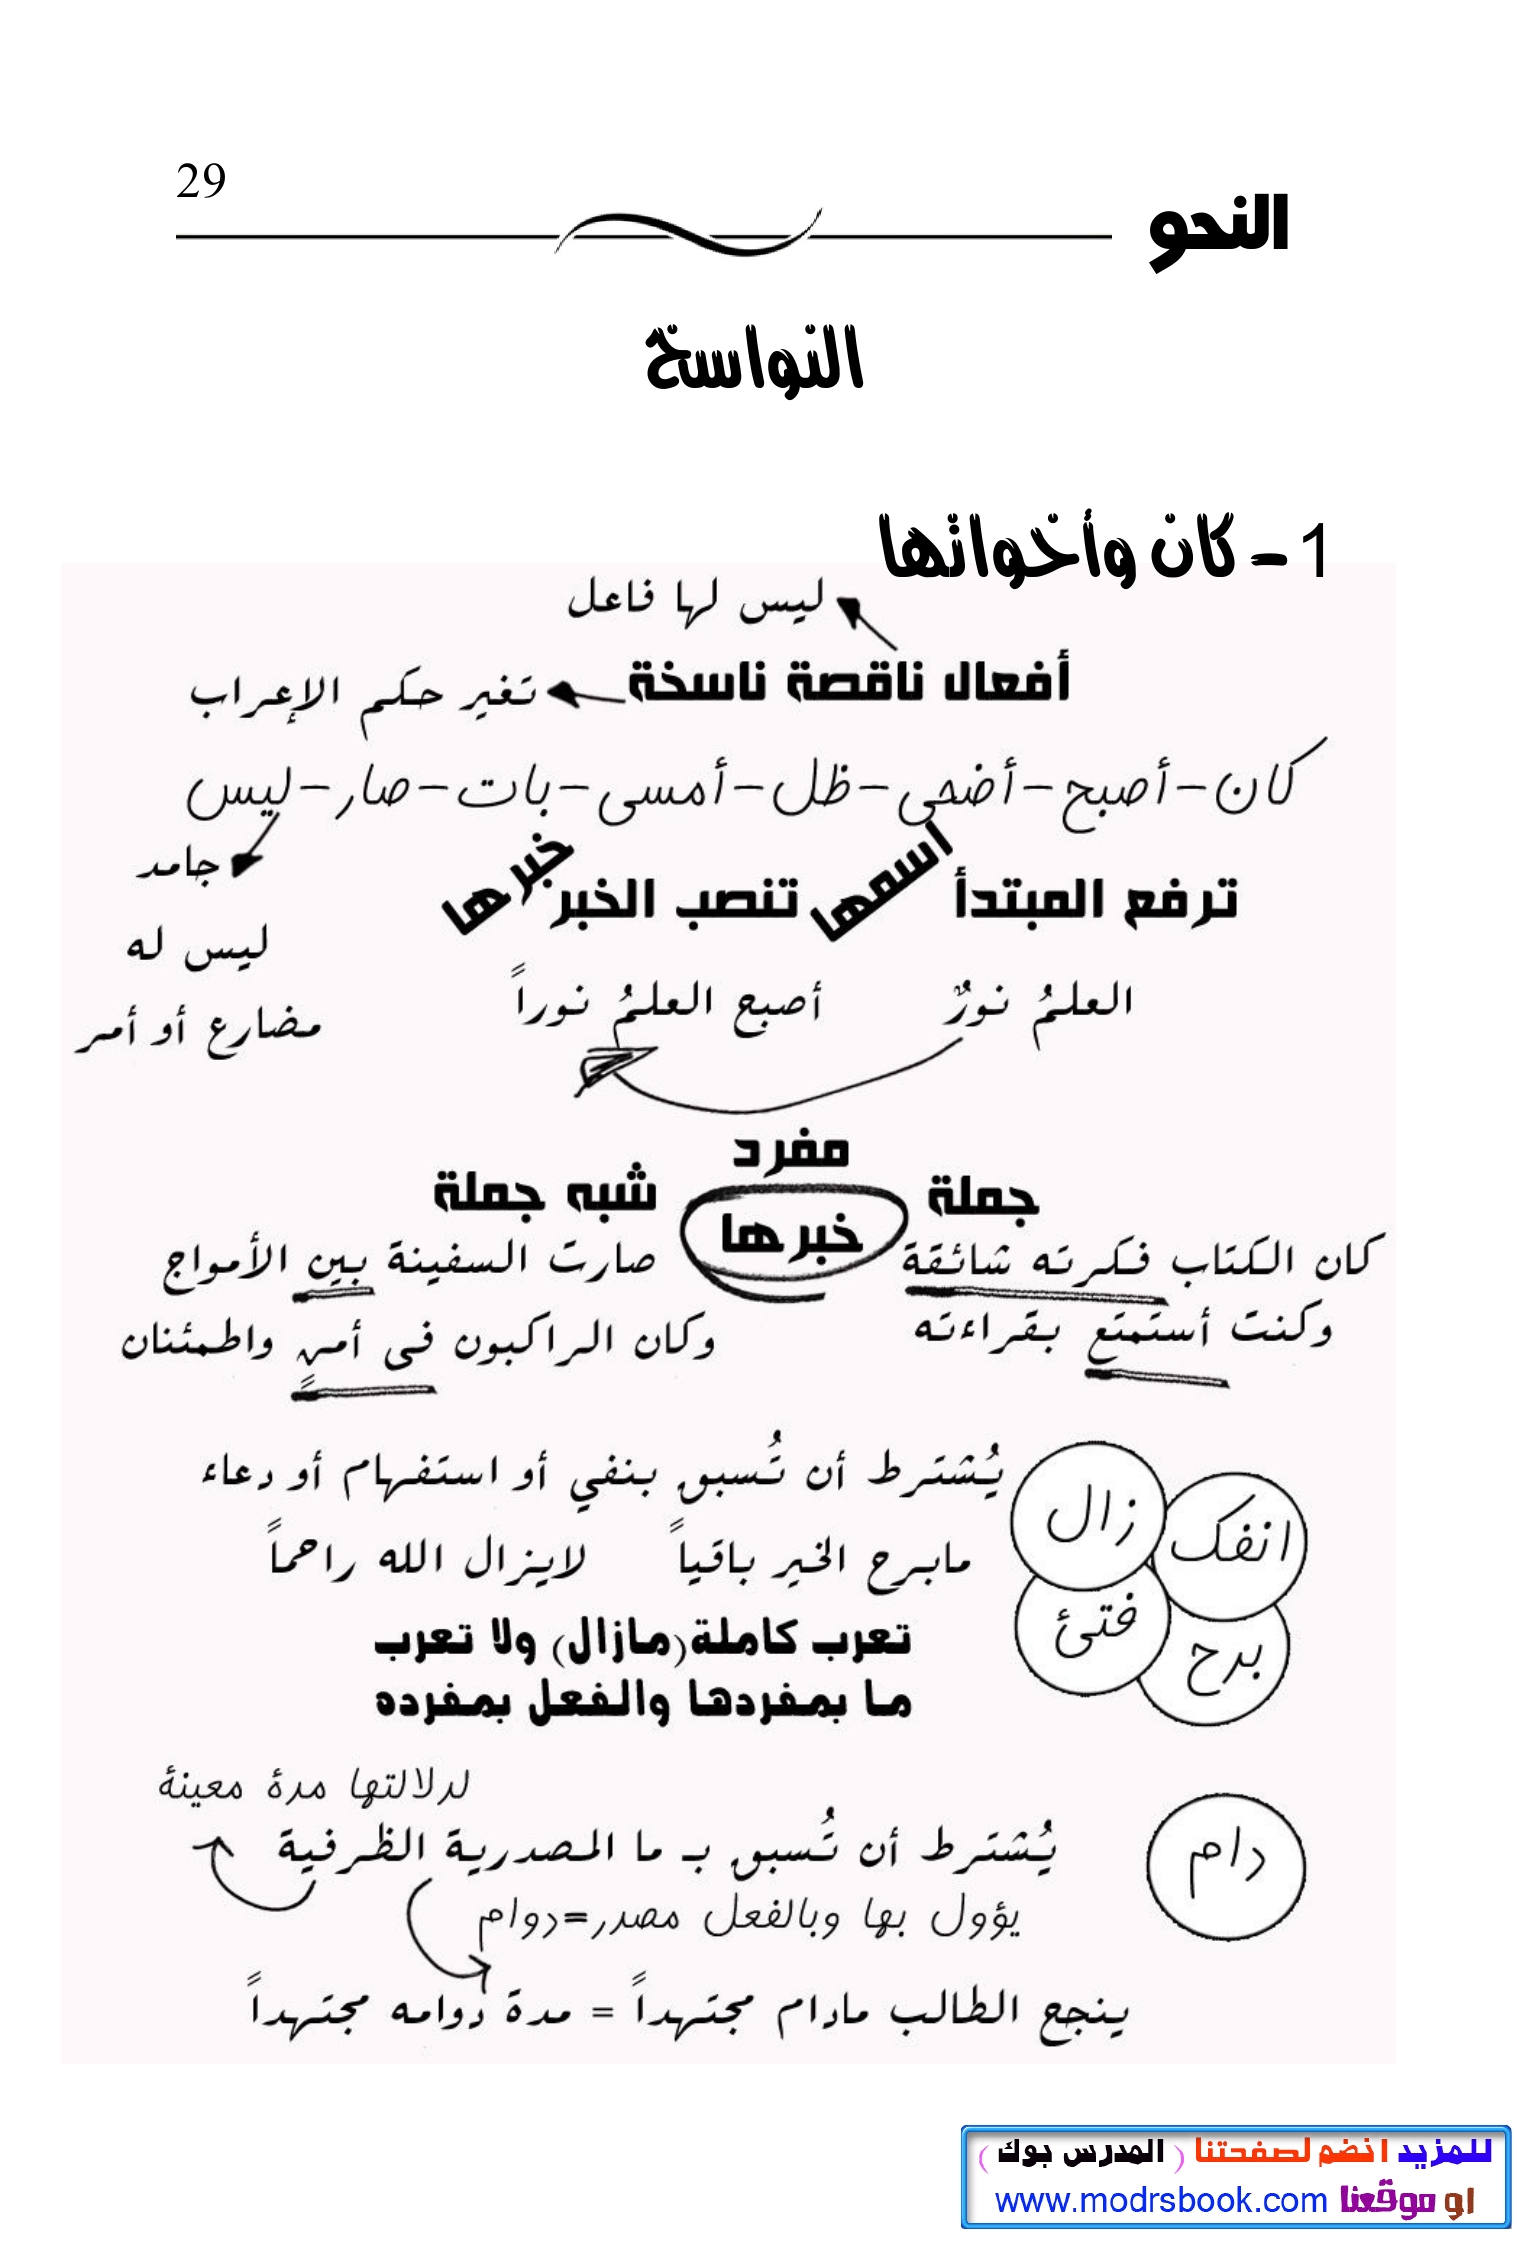 29
النحو
النواسخ
1 – كان وأخواتها
ليس لها فاعل
أفعال ناقصة ناسخة
تغير حكم الإعراب
كان – أصبح – أضحى – ظل – أمسى – بات – صار – ليس
جامد
ليس له
مضارع أو أمر
ترفع المبتدأ اسمها تنصب الخبر خبرها
العلمُ نورٌ أصبح العلمُ نوراً
مفرد
جملة خبرها شبه جملة
كان الكتاب فكرته شائقة
وكنت أستمتع بقراءته
صارت السفينة بين الأمواج
وكان الراكبون في أمنٍ واطمئنان
زال
انفك
فتئ
برح
يُشترط أن تُسبق بنفي أو استفهام أو دعاء
مابرح الخير باقياً لايزال الله راحماً
تعرب كاملة (مازال) ولا تعرب
ما بمفردها والفعل بمفرده
لدلالتها مدة معينة
دام
يُشترط أن تُسبق بـ ما المصدرية الظرفية
يؤول بها وبالفعل مصدر=دوام
ينجح الطالب مادام مجتهداً = مدة دوامه مجتهداً
للمزيد انضم لصفحتنا ( المدرس بوك )
او موقعنا www.modrsbook.com